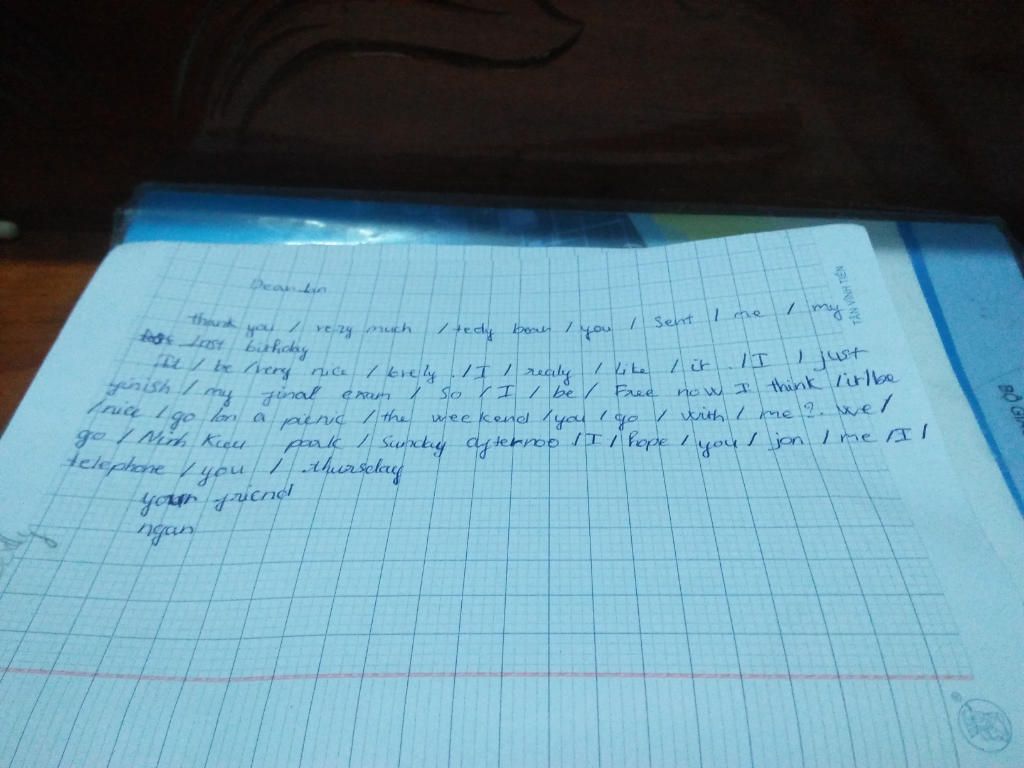 Dear Lin
thank you / very much / tedy bear / you / Sent / me / my
last bithday
It / be / very nice / lovely . / I / realy / like / it . / I / just
finish / my final exam / So / I / be / Free now I think / it / be
/ nice / go / on a picnic / the weekend / you / go / with / me ? . We /
go / Ninh Kieu park / Sunday afternoo / I / hope / you / jon / me / I /
telephone / you / thursday
your friend
ngan
TÂN VĨNH TIẾN
BỘ GIÁO